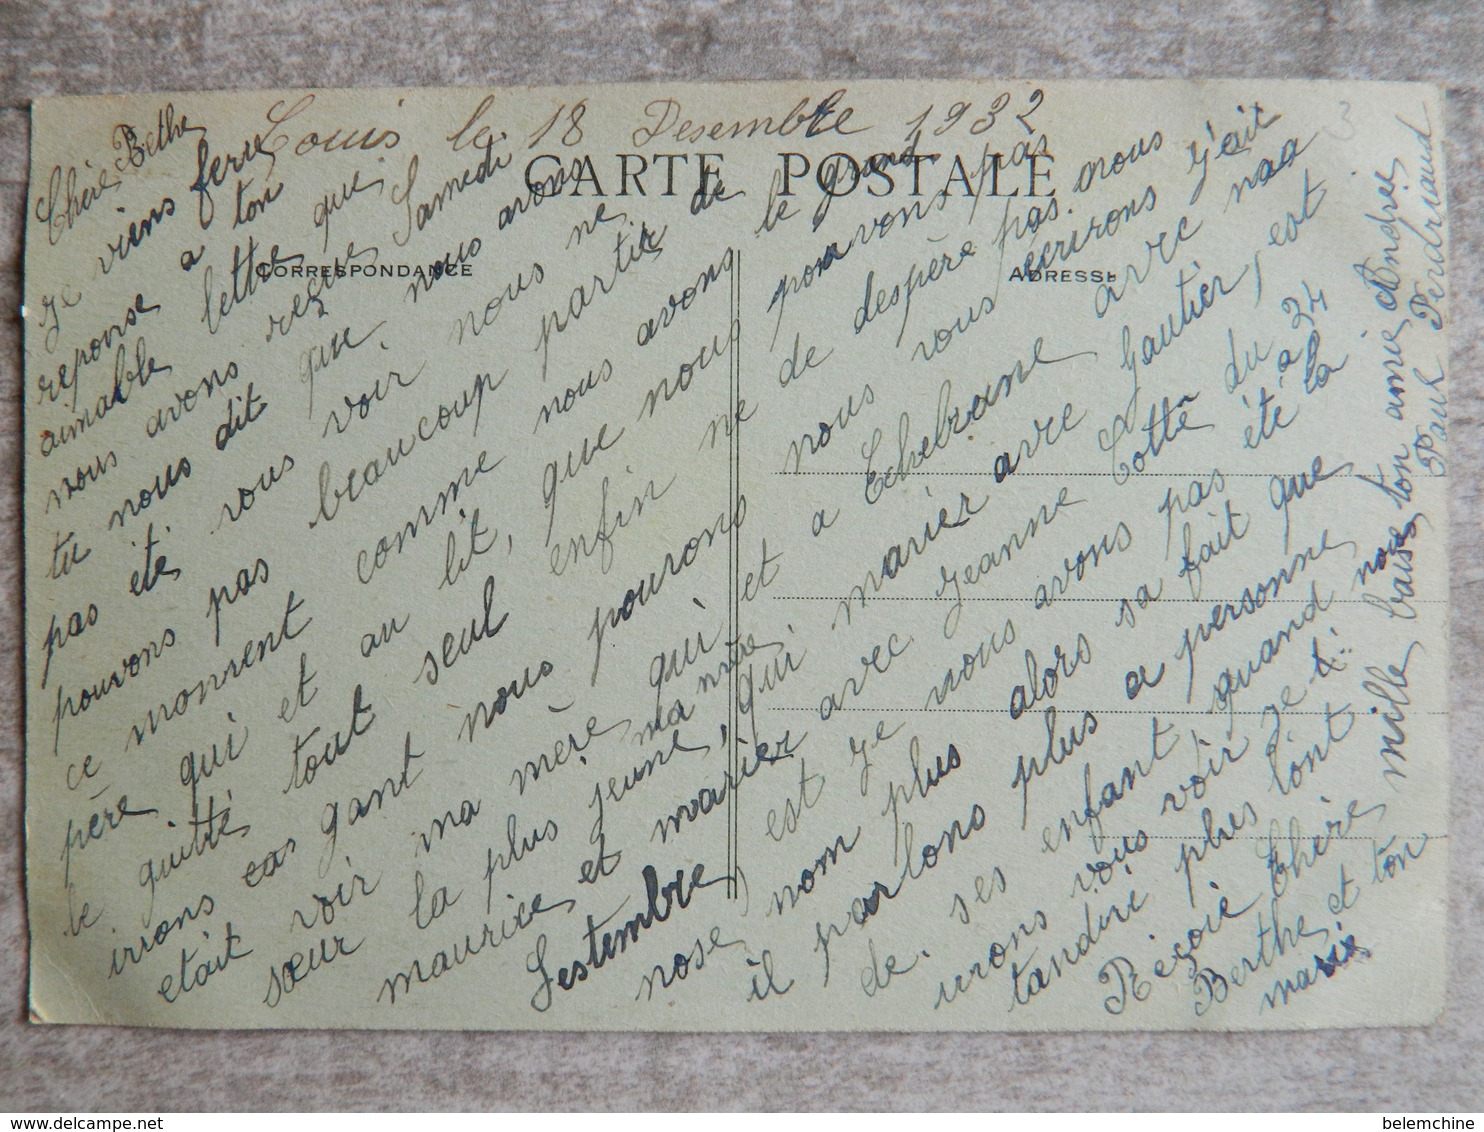 Louis le 18 Desembre 1932
CARTE POSTALE
CORRESPONDANCE
ADRESSE
Chère Bethe
Je viens feru
reponse a ton
aimable lettre que
nous avons reçue Samedi
tu nous dit que nous avons
pas été vous voir nous ne
pouvons pas beaucoup partir de
ce monment comme nous avons le grand
père qui et au lit, que nous pouvons pas
le quitté tout seul enfin ne de despère pas nous
irrons cas gant nous pourons nous vous écrirons j'ait
etait voir ma mère qui et a Echebrune avec maa
sœur la plus jeune, qui marier avec Gautier, est
maurice et marier avec Jeanne Cotté du 24
Sestembre, est je nous avons pas été a la
nose nom plus alors sa fait que
il parlons plus a personne
de ses enfant quand nous
irons vous voir je ti
tandire plus lont
Reçoie Chère
Berthe mille bais
et ton
maris
de ton amie Andrée
Paul Perdriaud
3
belemchine